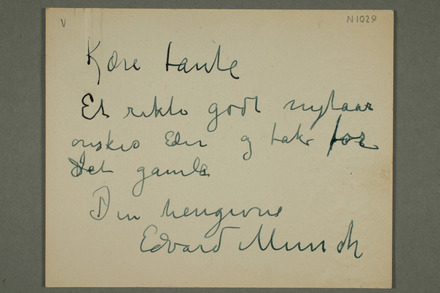 V
N1029
Kære tante
Et rikti godt nytaar
ønskes Eder og tak for
det gamle
Din hengivne
Edvard Munch